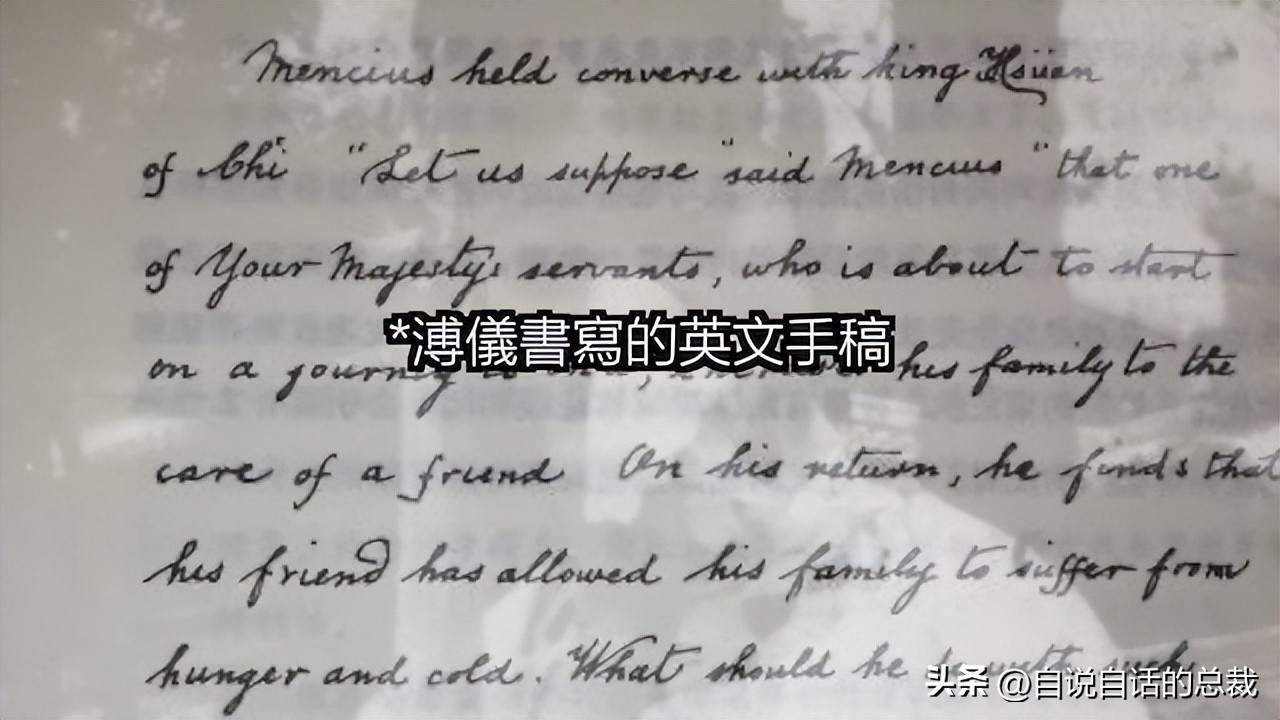 Mencius held converse with king Hsüan
of Chi "Let us suppose" said Mencius "that one
of Your Majesty's servants, who is about to start
*溥儀書寫的英文手稿
on a journey his family to the
care of a friend On his return, he finds that
his friend has allowed his family to suffer from
hunger and cold. What should he
头条 @自说自话的总裁